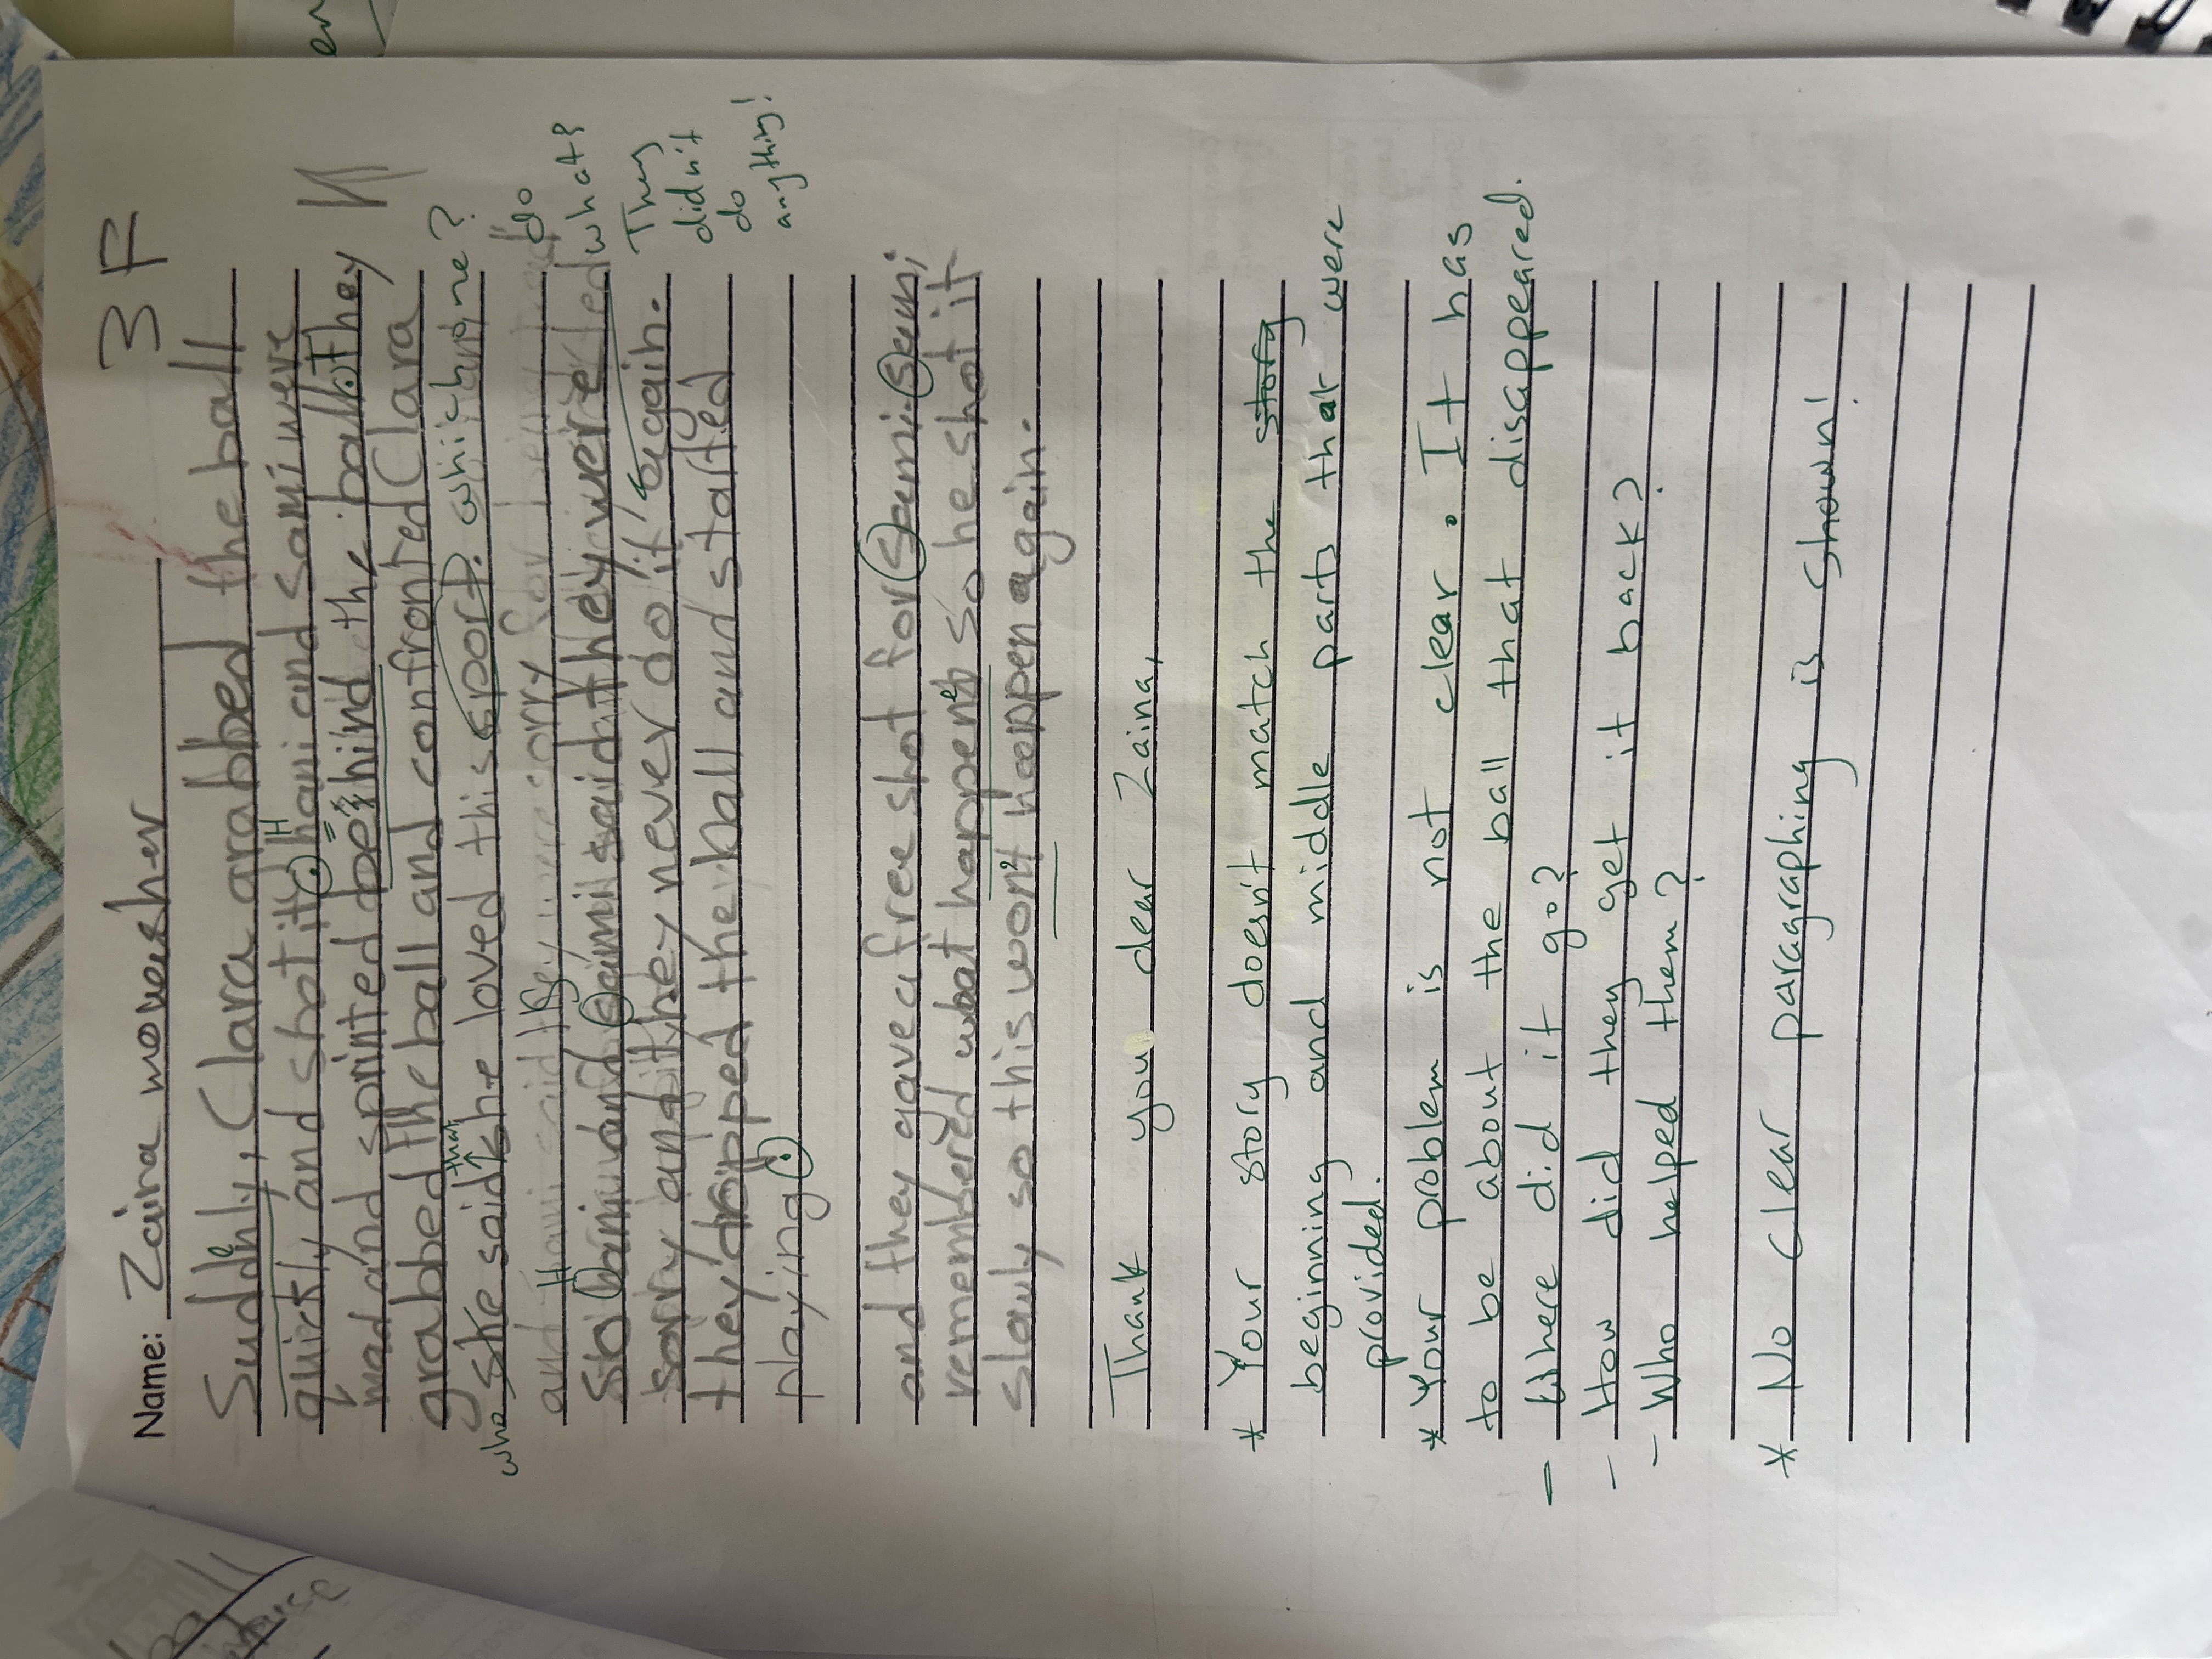 Name: Zaina 3F
Suddnly, Clara grabbed the ball
e
quickly and shot it. hani and sami were
H
mad and sprinted behind the ball. They
grabbed the ball and confronted Clara
who she said that she loved this sport. which one?
and Hani said they were sorry for
do what?
So hani and sami said they were
H
sorry and they never do it again.
They didn't do anything!
they dropped the ball and started
playing.
and they gave a free shot for Sami. Sami
remembered what happened so he shot it
slowly so this won't happen again.
Thank you dear Zaina,
* Your story doesn't match the story
beginning and middle parts that were
provided.
* Your problem is not clear. It has
to be about the ball that disappeared.
- Where did it go?
- How did they get it back?
- Who helped them?
* No clear paragraphing is shown!